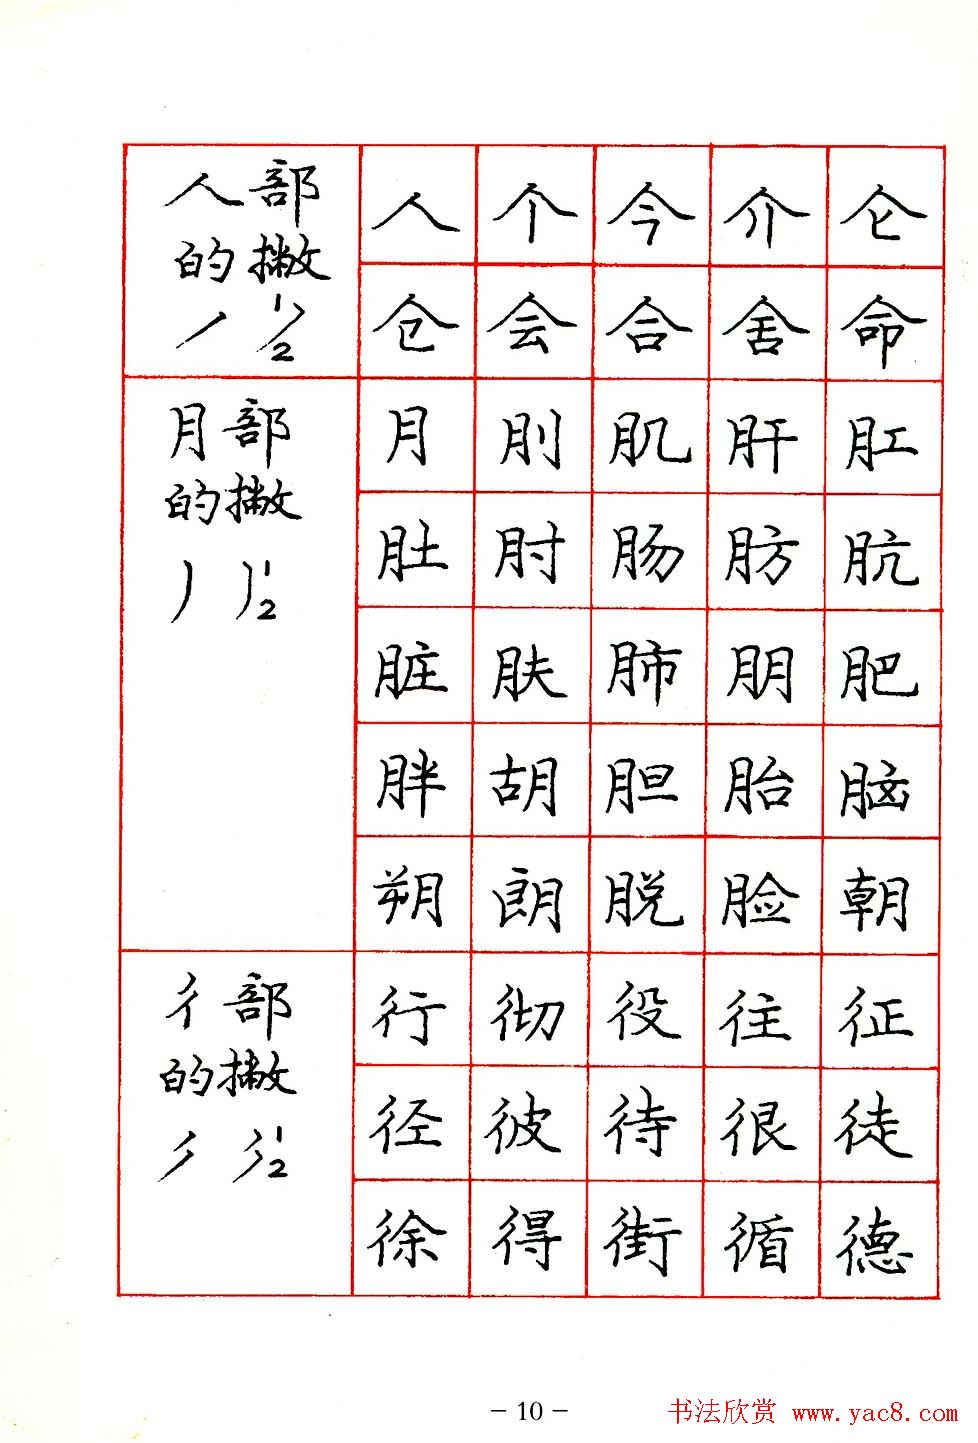 人部
的撇
丿 1 2
人 个 今 介 仑
仓 会 合 舍 命
月部
的撇
丿 1 2
月 刖 肌 肝 肛
肚 肘 肠 肪 肮
脏 肤 肺 朋 肥
胖 胡 胆 胎 脑
朔 朗 脱 脸 朝
彳部
的撇
1 2
行 彻 役 往 征
径 彼 待 很 徒
徐 得 街 循 德
- 10 -
书法欣赏 www.yac8.com